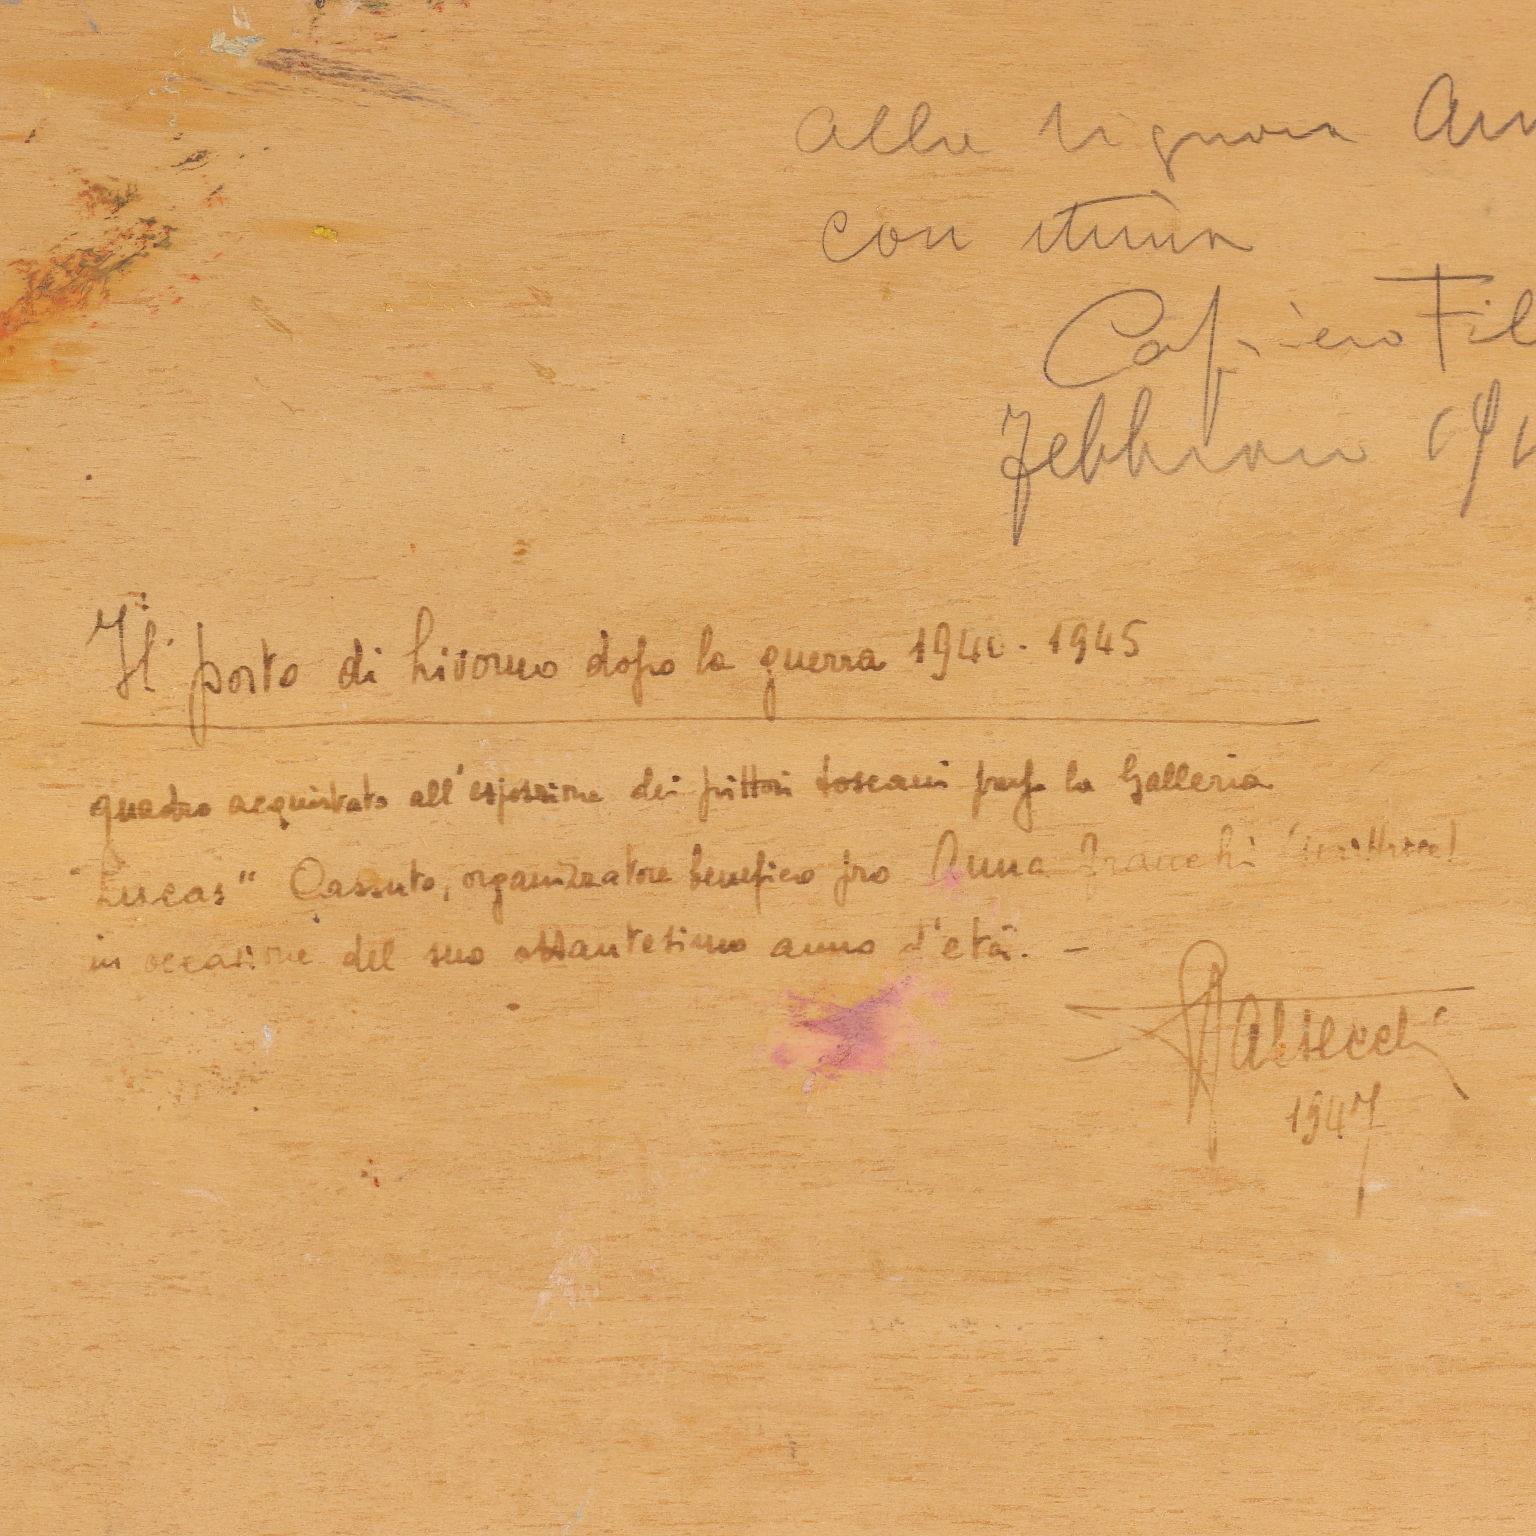 alla signora Ann
con stima
Cafiero Fil
Febbraio 19
Il porto di Livorno dopo la guerra 1940-1945
quadro acquistato all'esposizione dei pittori toscani presso la Galleria
"Lucas" Cassuto, organizzatore benefico pro Anna Franchi (scrittrice)
in occasione del suo ottantesimo anno d'età. -
Alsecchi
1947